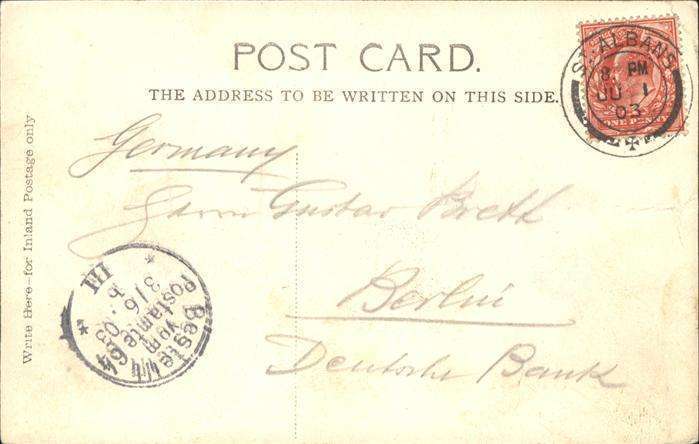 POST CARD.
THE ADDRESS TO BE WRITTEN ON THIS SIDE.
ST. ALBANS
8 PM
JU 1
03
ONE PENNY
Write Here—for Inland Postage only
Germany
Herrn Gustav Brett
Berlin
Deutsche Bank
Beste
vom
Postamte 64
3/6. 03
III